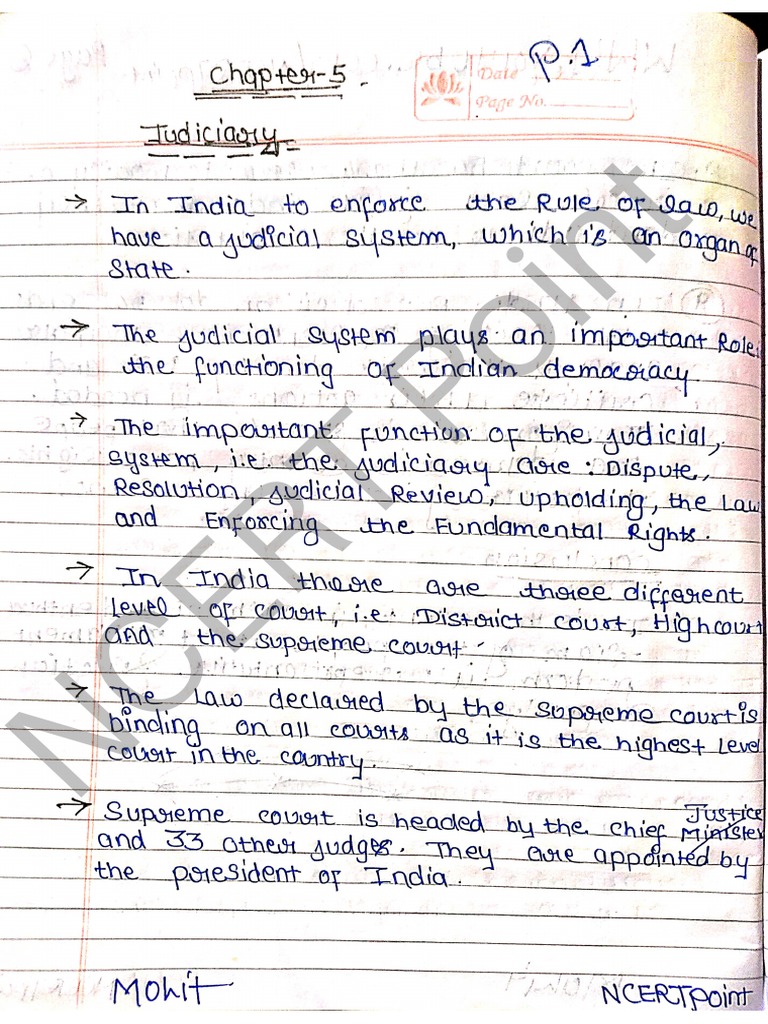 P.1
Chapter-5
Date
Page No.
Judiciary
→ In India to enforce the Rule of Law, we
have a judicial system, which is an organ of
State.
→ The judicial system plays an important Role in
the functioning of Indian democracy
→ The important function of the judicial,
system, i.e. the judiciary are : Dispute,
Resolution, Judicial Review, upholding, the Law
and Enforcing the Fundamental Rights.
→ In India there are three different
Level of court, i.e. District court, High court
and the supreme court
→ The Law declared by the supreme court is
binding on all courts as it is the highest Level
court in the country.
→ Supreme court is headed by the chief Minister Justice
and 33 other judges. They are appointed by
the president of India.
Mohit
NCERTpoint
NCERT Point